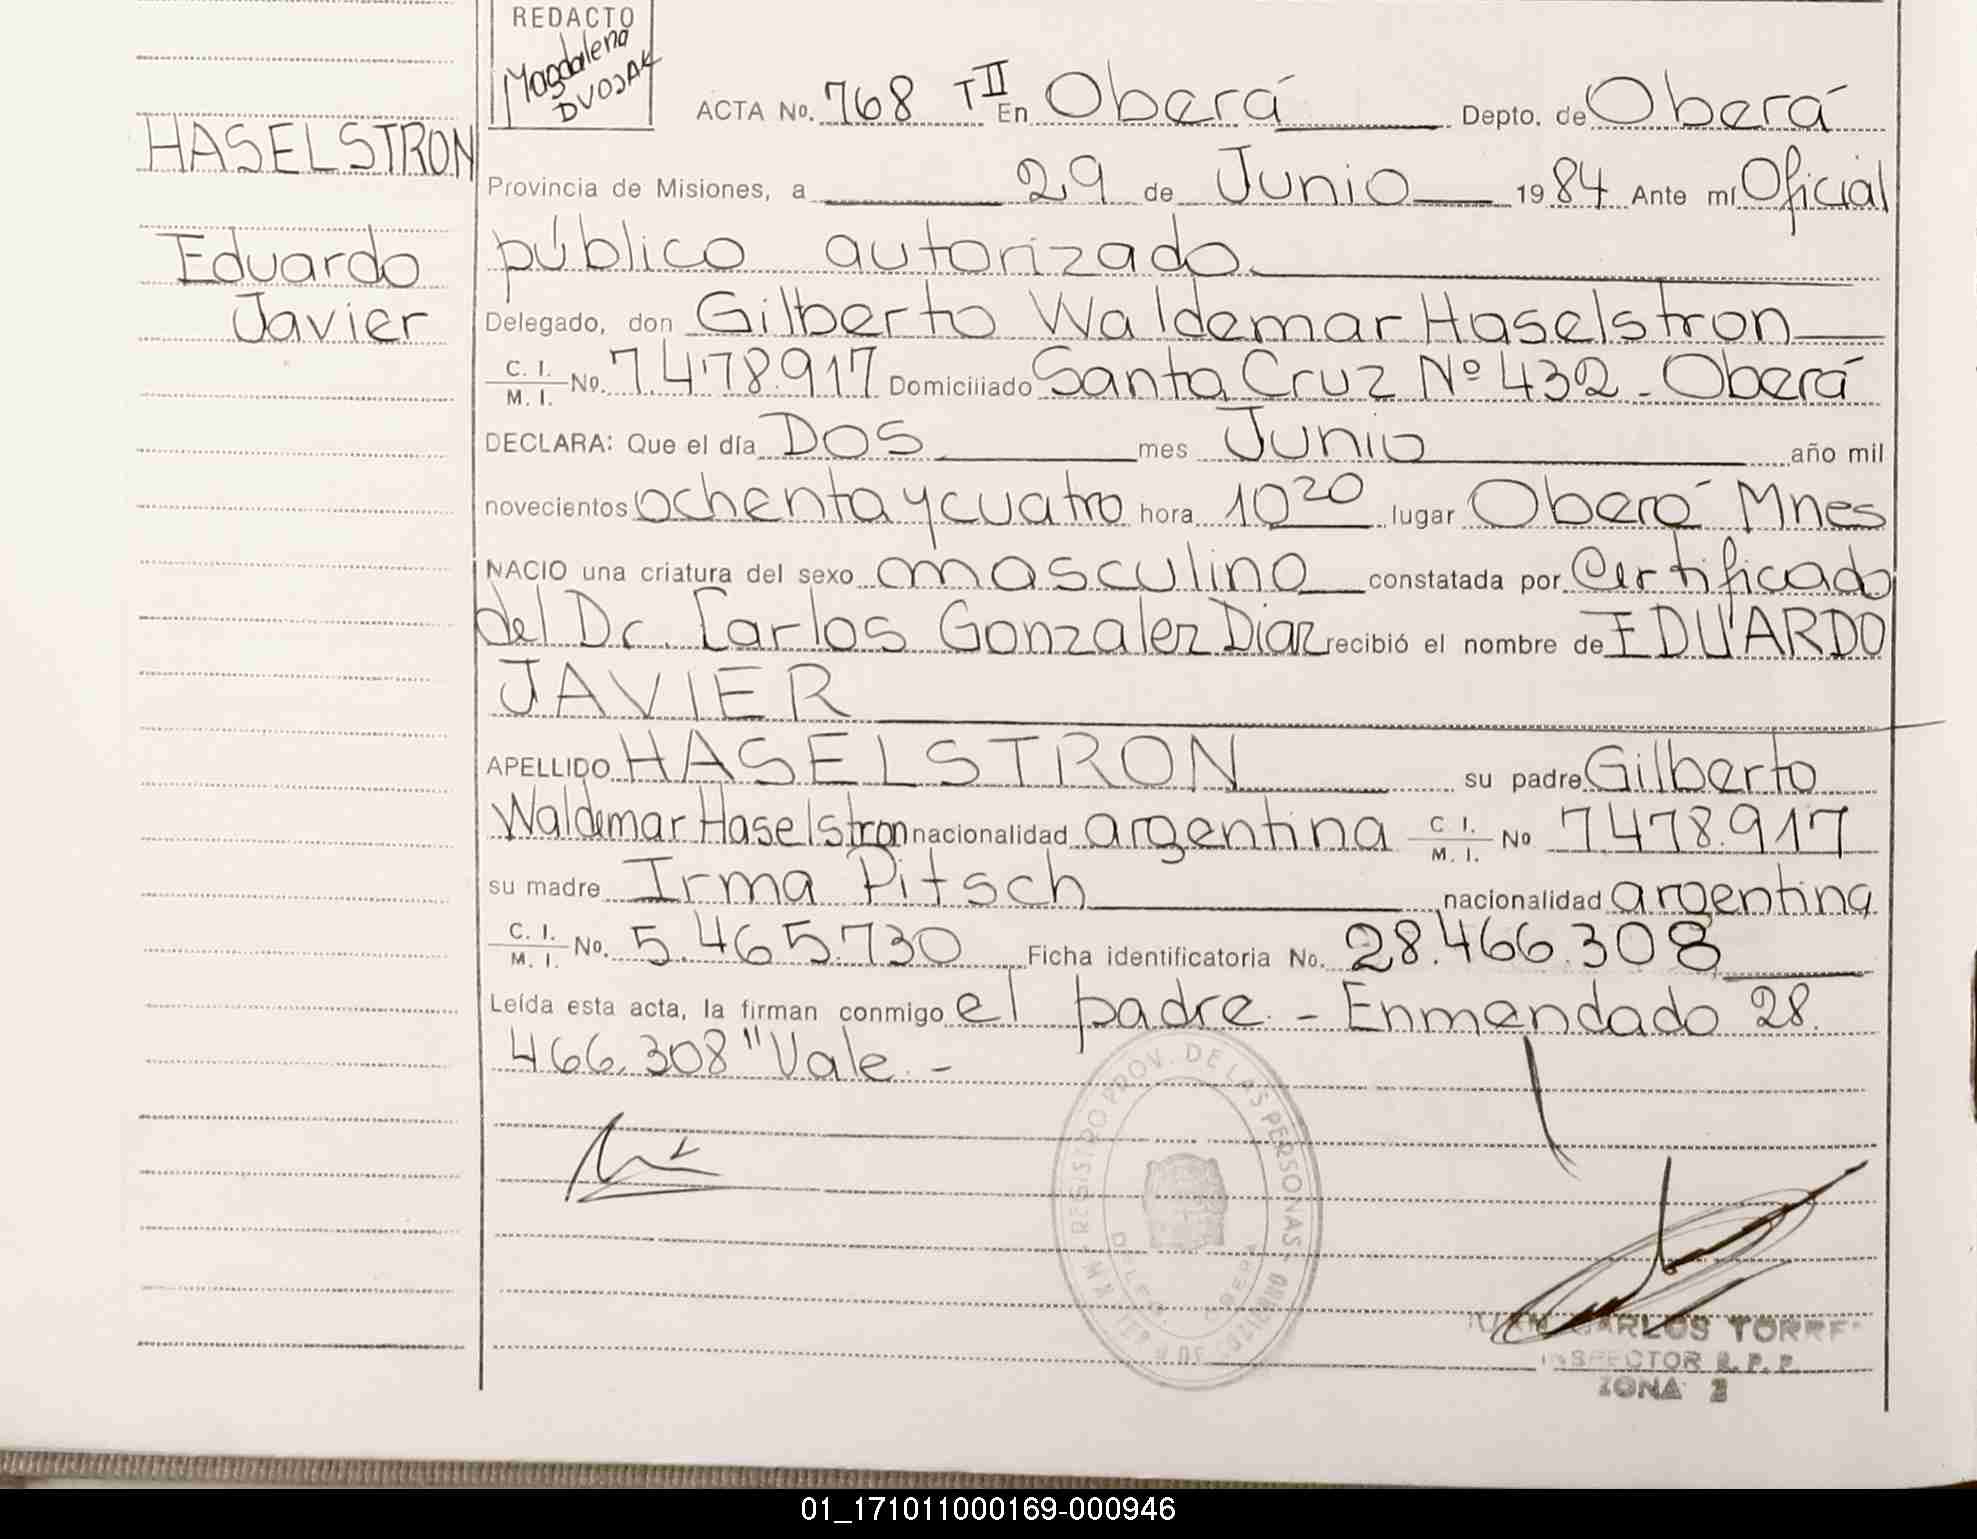 REDACTO
Magdalena
DVOJAK
ACTA No. 768 T II En Oberá Depto. de Oberá
HASELSTRON
Provincia de Misiones, a 29 de Junio 1984 Ante mí Oficial
público autorizado
Eduardo
Javier
Delegado, don Gilberto Waldemar Haselstron
C. I. / M. I. No. 7.478.917 Domiciliado Santa Cruz Nº 432 - Oberá
DECLARA: Que el día Dos mes Junio año mil
novecientos ochenta y cuatro hora 10 20 lugar Oberá Mnes
NACIO una criatura del sexo masculino constatada por Certificado
del Dr. Carlos Gonzalez Diaz recibió el nombre de EDUARDO
JAVIER
APELLIDO HASELSTRON su padre Gilberto
Waldemar Haselstron nacionalidad argentina C. I. / M. I. No 7.478.917
su madre Irma Pitsch nacionalidad argentina
C. I. / M. I. No. 5.465.730 Ficha identificatoria No. 28.466.308
Leída esta acta, la firman conmigo el padre. - Enmendado 28.
466.308" Vale. -
REGISTRO PROV. DE LAS PERSONAS
JUAN CARLOS TORRES
INSPECTOR R. P. P.
ZONA 2
01_171011000169-000946